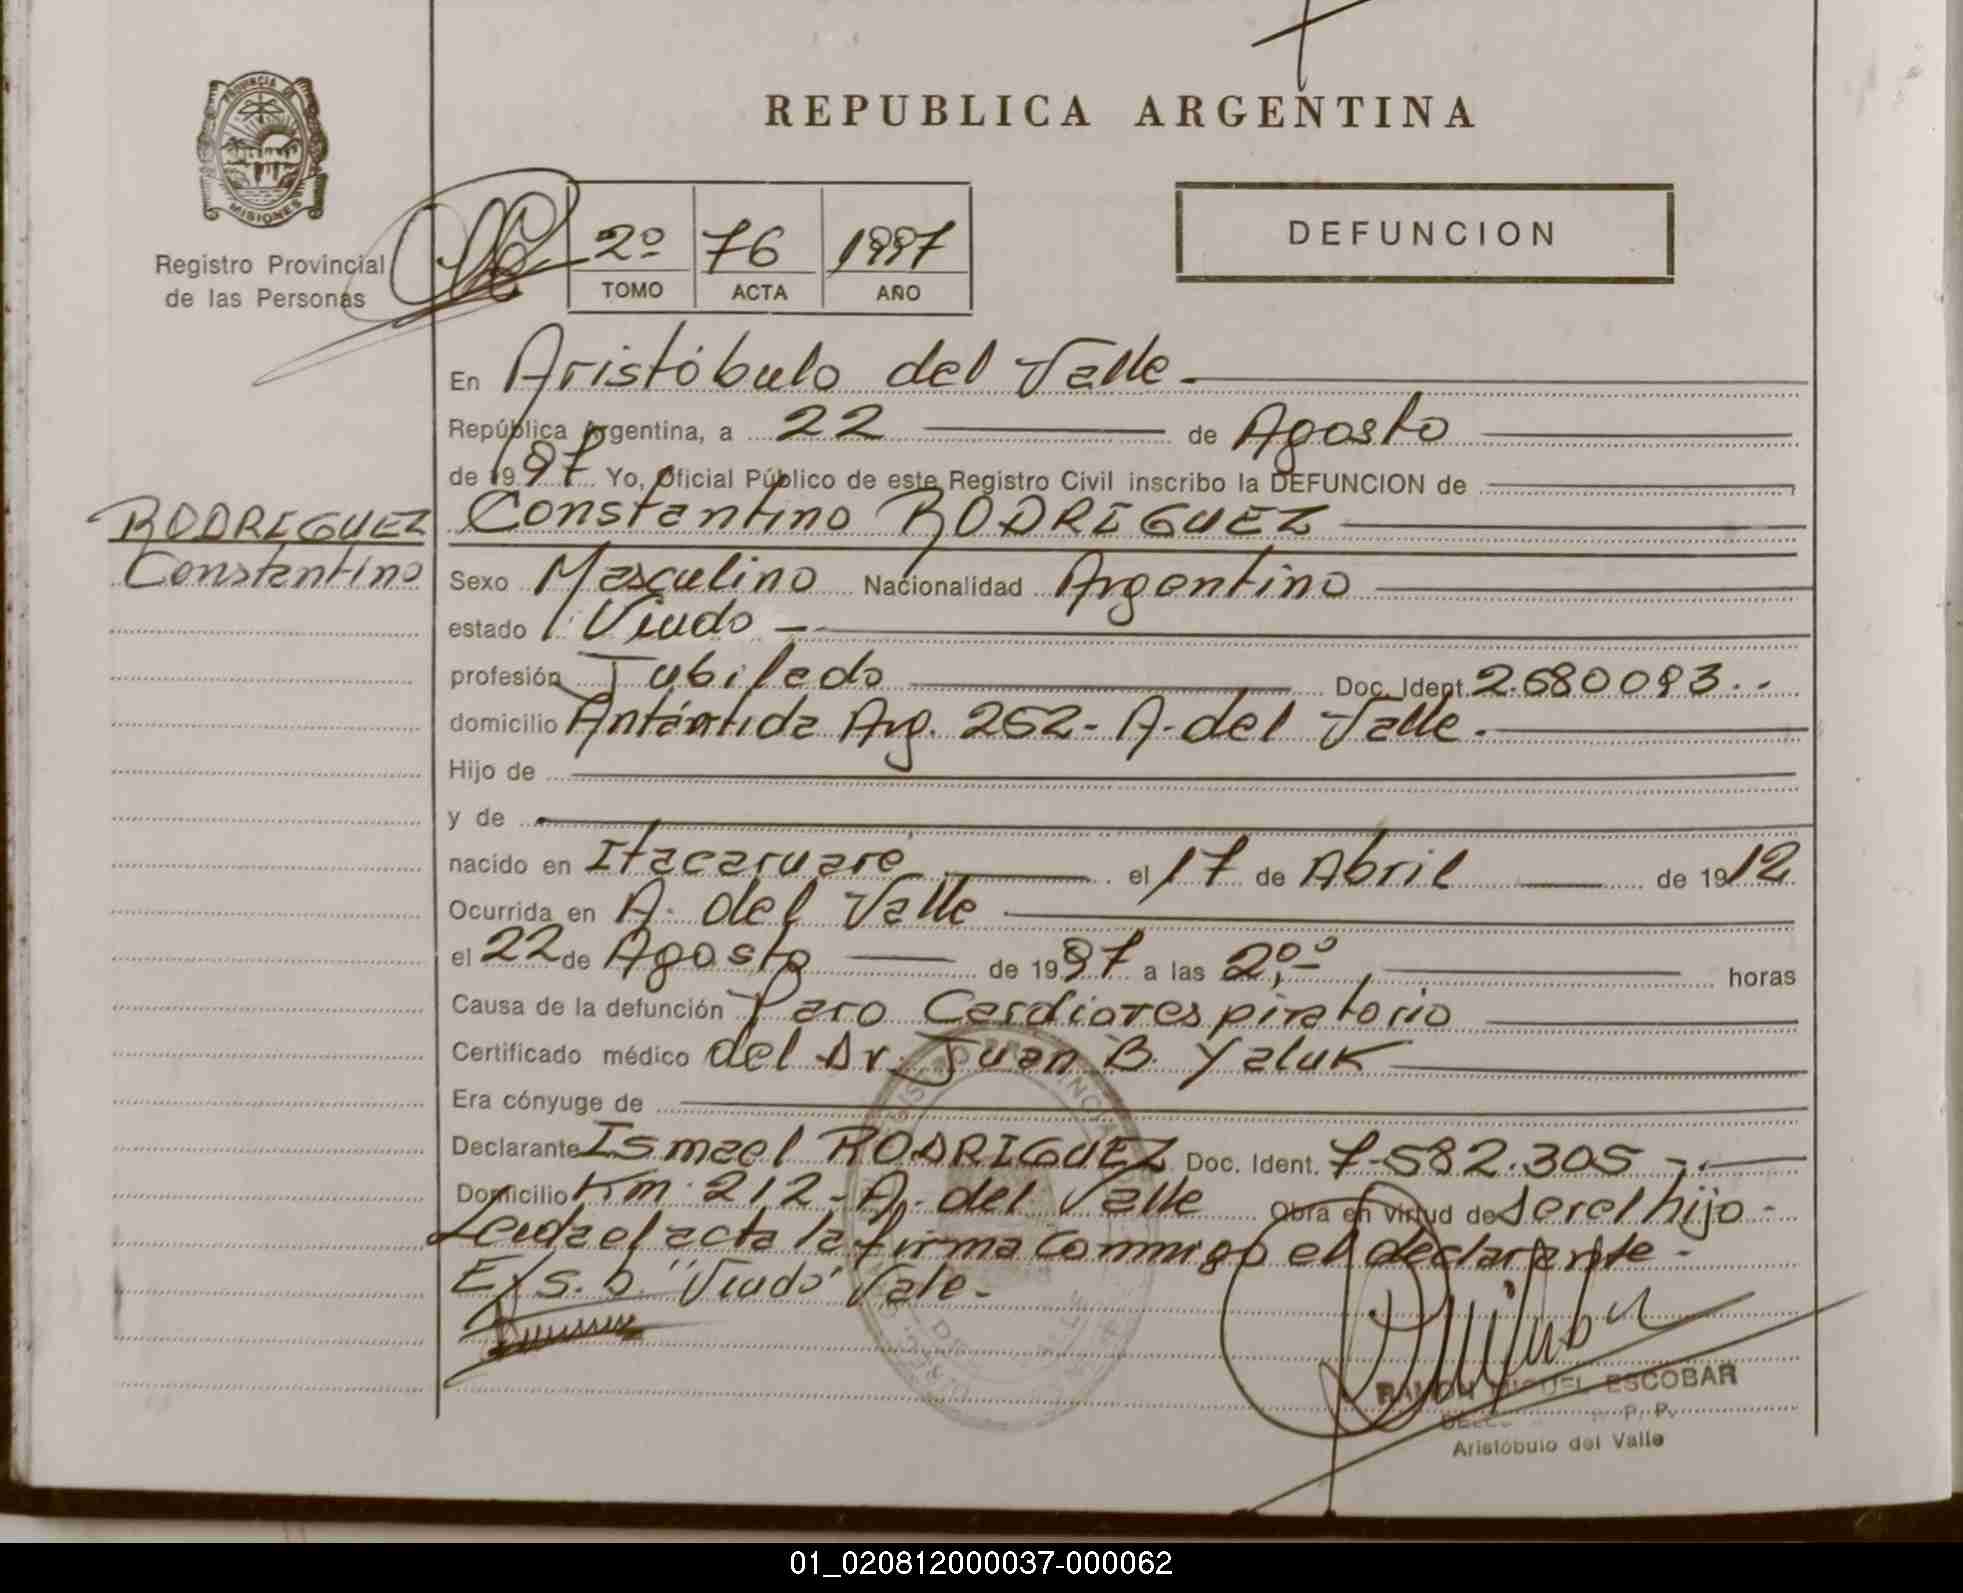 PROVINCIA DE
MISIONES
Registro Provincial
de las Personas
REPUBLICA ARGENTINA
2º 76 1997
TOMO ACTA AÑO
DEFUNCION
En Aristóbulo del Valle.
República Argentina, a 22 de Agosto
de 1997 Yo, Oficial Público de este Registro Civil inscribo la DEFUNCION de
RODRIGUEZ
Constantino
Constantino RODRIGUEZ
Sexo Masculino Nacionalidad Argentino
estado Viudo -
profesión Jubilado Doc. Ident. 2.680093..
domicilio Antártida Arg. 252 - A. del Valle.
Hijo de
y de
nacido en Itacaruaré el 17 de Abril de 1912
Ocurrida en A. del Valle
el 22 de Agosto de 1997 a las 2,ºº horas
Causa de la defunción Paro Cardiorespiratorio
Certificado médico del Dr. Juan B. Yaluk
Era cónyuge de
Declarante Ismael RODRIGUEZ Doc. Ident. 7.582.305 -.
Domicilio Km. 212 - A. del Valle Obra en virtud de ser el hijo -
Leida el acta la firma conmigo el declarante -
E/s. b. "Viudo" Vale -
RAMON MIGUEL ESCOBAR
P. P.
Aristóbulo del Valle
01_020812000037-000062